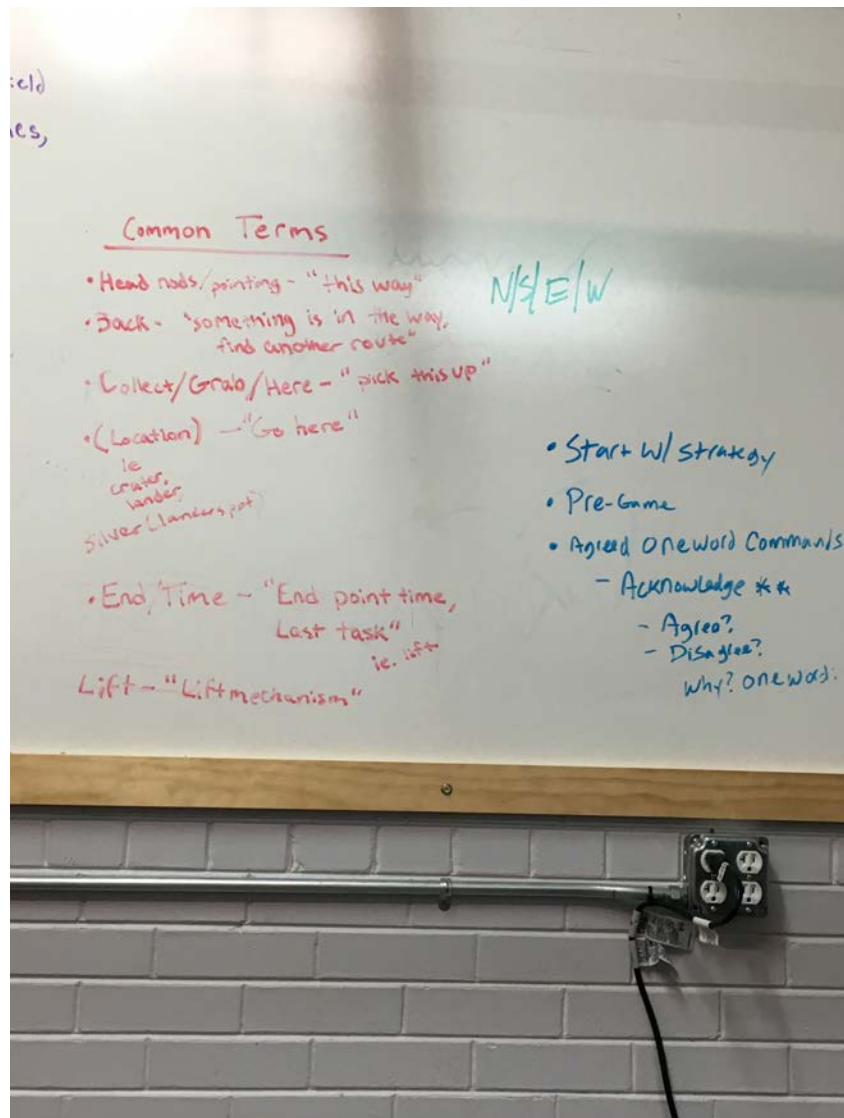 ield
es,
Common Terms
• Head nods/pointing - "this way"
• Back - "something is in the way,
find another route"
• Collect/Grab/Here - "pick this up"
• (Location) - "Go here"
ie
crater,
lander,
silver (landerspot)
• End/Time - "End point time,
Last task"
ie. lift
Lift - "Lift mechanism"
N/S/E/W
• Start w/ strategy
• Pre-Game
• Agreed One Word Commands
- Acknowledge **
- Agree?
- Disagree?
Why? one word: